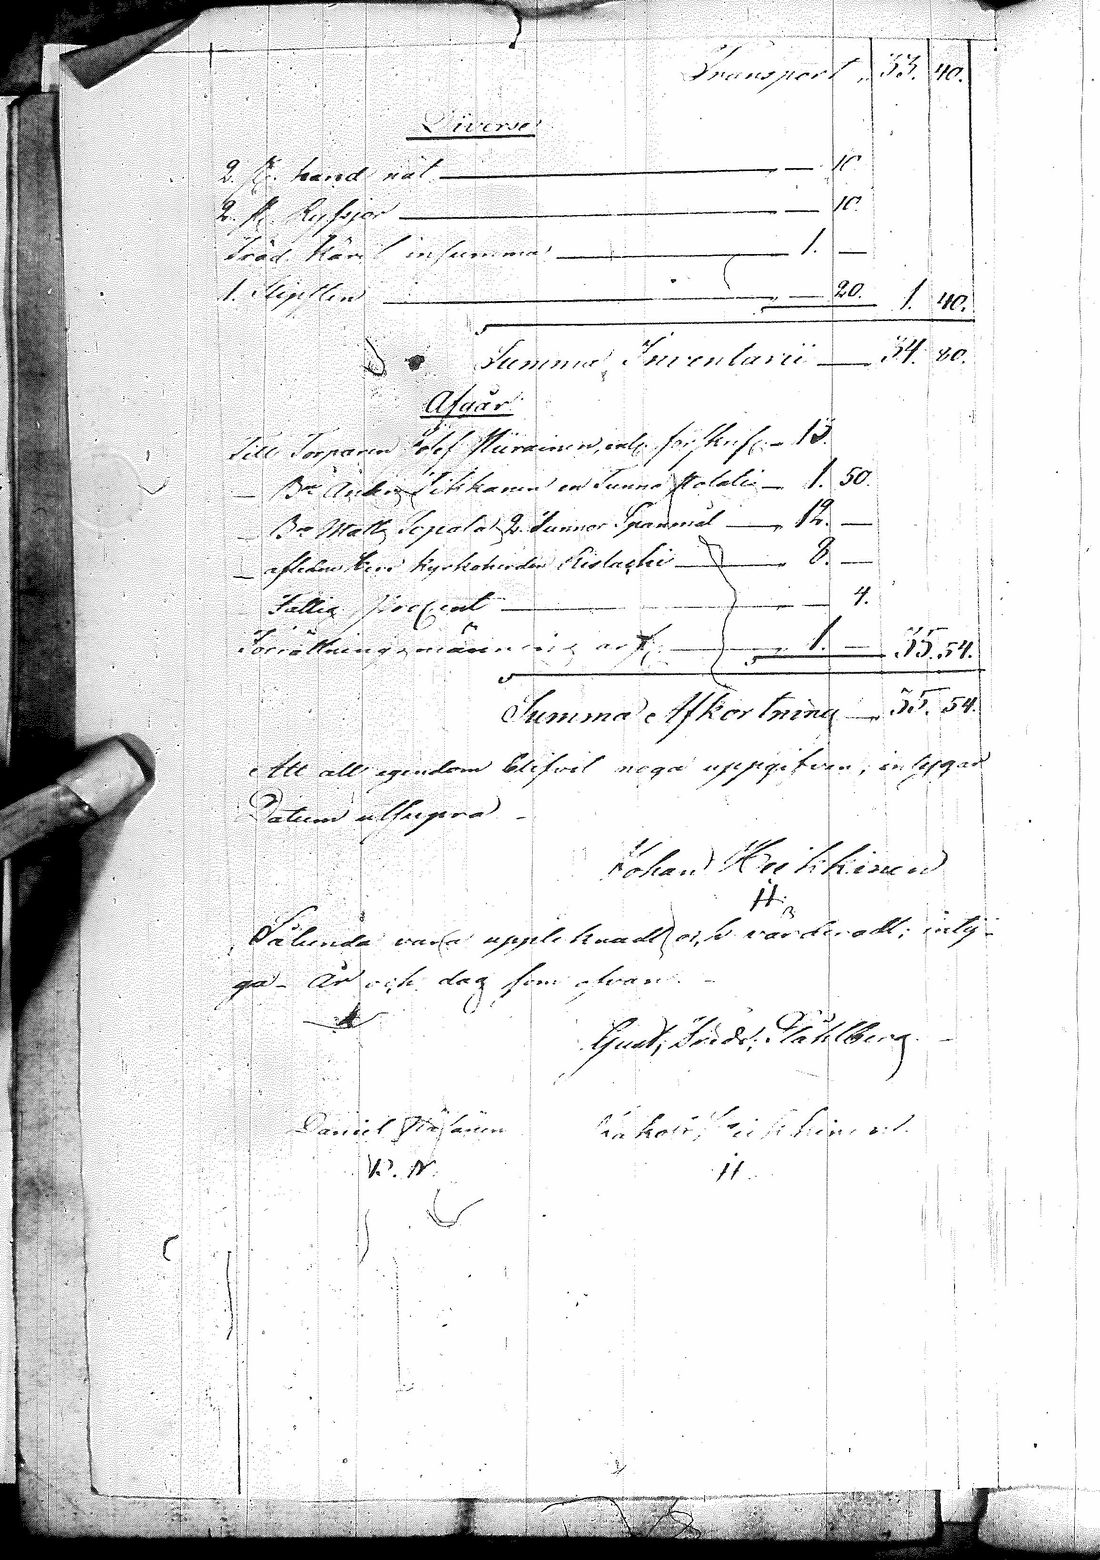 Transport 33. 40.
Diverse
2. st. hand nät — 10
2. st. Ryssjor — 10.
Träd Käril insumma 1. —
1. — 20. 1. 40.
Summa Inventarii 34. 80.
Afgår
Till Torparen Olof förskrif. 13.
— Bn Anders Tikkanen en Tunna 1. 50.
— Bn Matts Sepala 2 Tunnor Spanmål 12. —
— afledne Herr Kyrkoherden 8. —
Fattig procent 4.
Förrättningsmännens arf. 1. — 35. 54.
Summa Afkortning 35. 54.
Att all egendom blifvit noga uppgifven, intygar
Datum utsupra
Johan Heikkinen
H.
Sålunda vara uppteknadt och värderadt; inty-
ga År och dag som ofvan.
Gust. Fredr. Ståhlberg
Daniel Jakob Heikkinen
H.